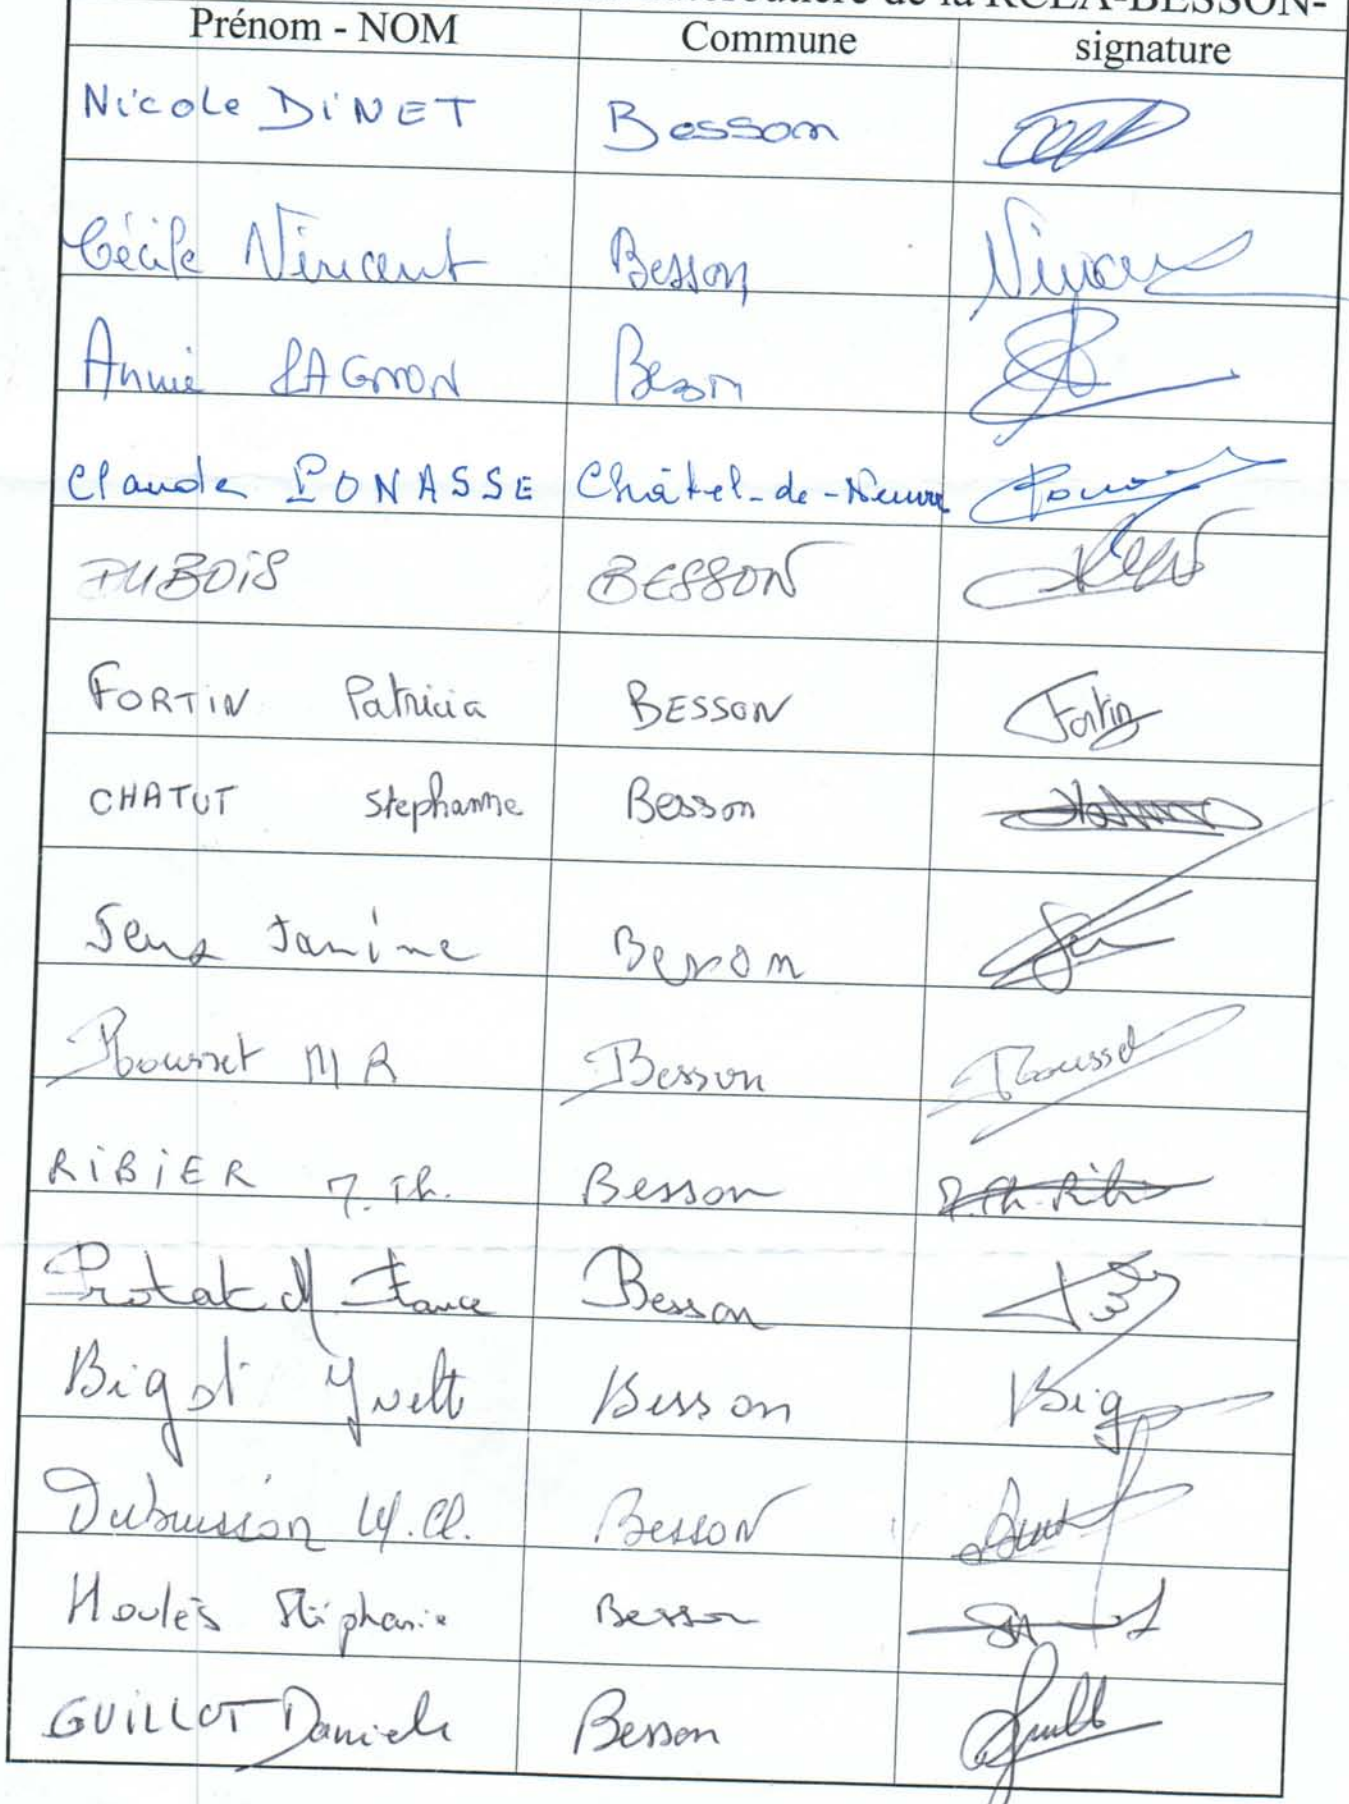 de la RCEA-BESSON-
Prénom - NOM Commune signature
Nicole DINET Besson
Cécile Vincent Besson Vincent
Annie LAGNON Besson
Claude PONASSE Châtel-de-Neuvre
DUBOIS BESSON
FORTIN Patricia BESSON Fortin
CHATUT Stephanne Besson
Janine Besson
Rousset M R Besson Rousset
RIBIER M.Th. Besson
Protat M France Besson
Bigot Yvette Besson Big
Dubuisson M.Cl. Besson
Houlès Stéphanie Besson
GUILLOT Daniele Besson